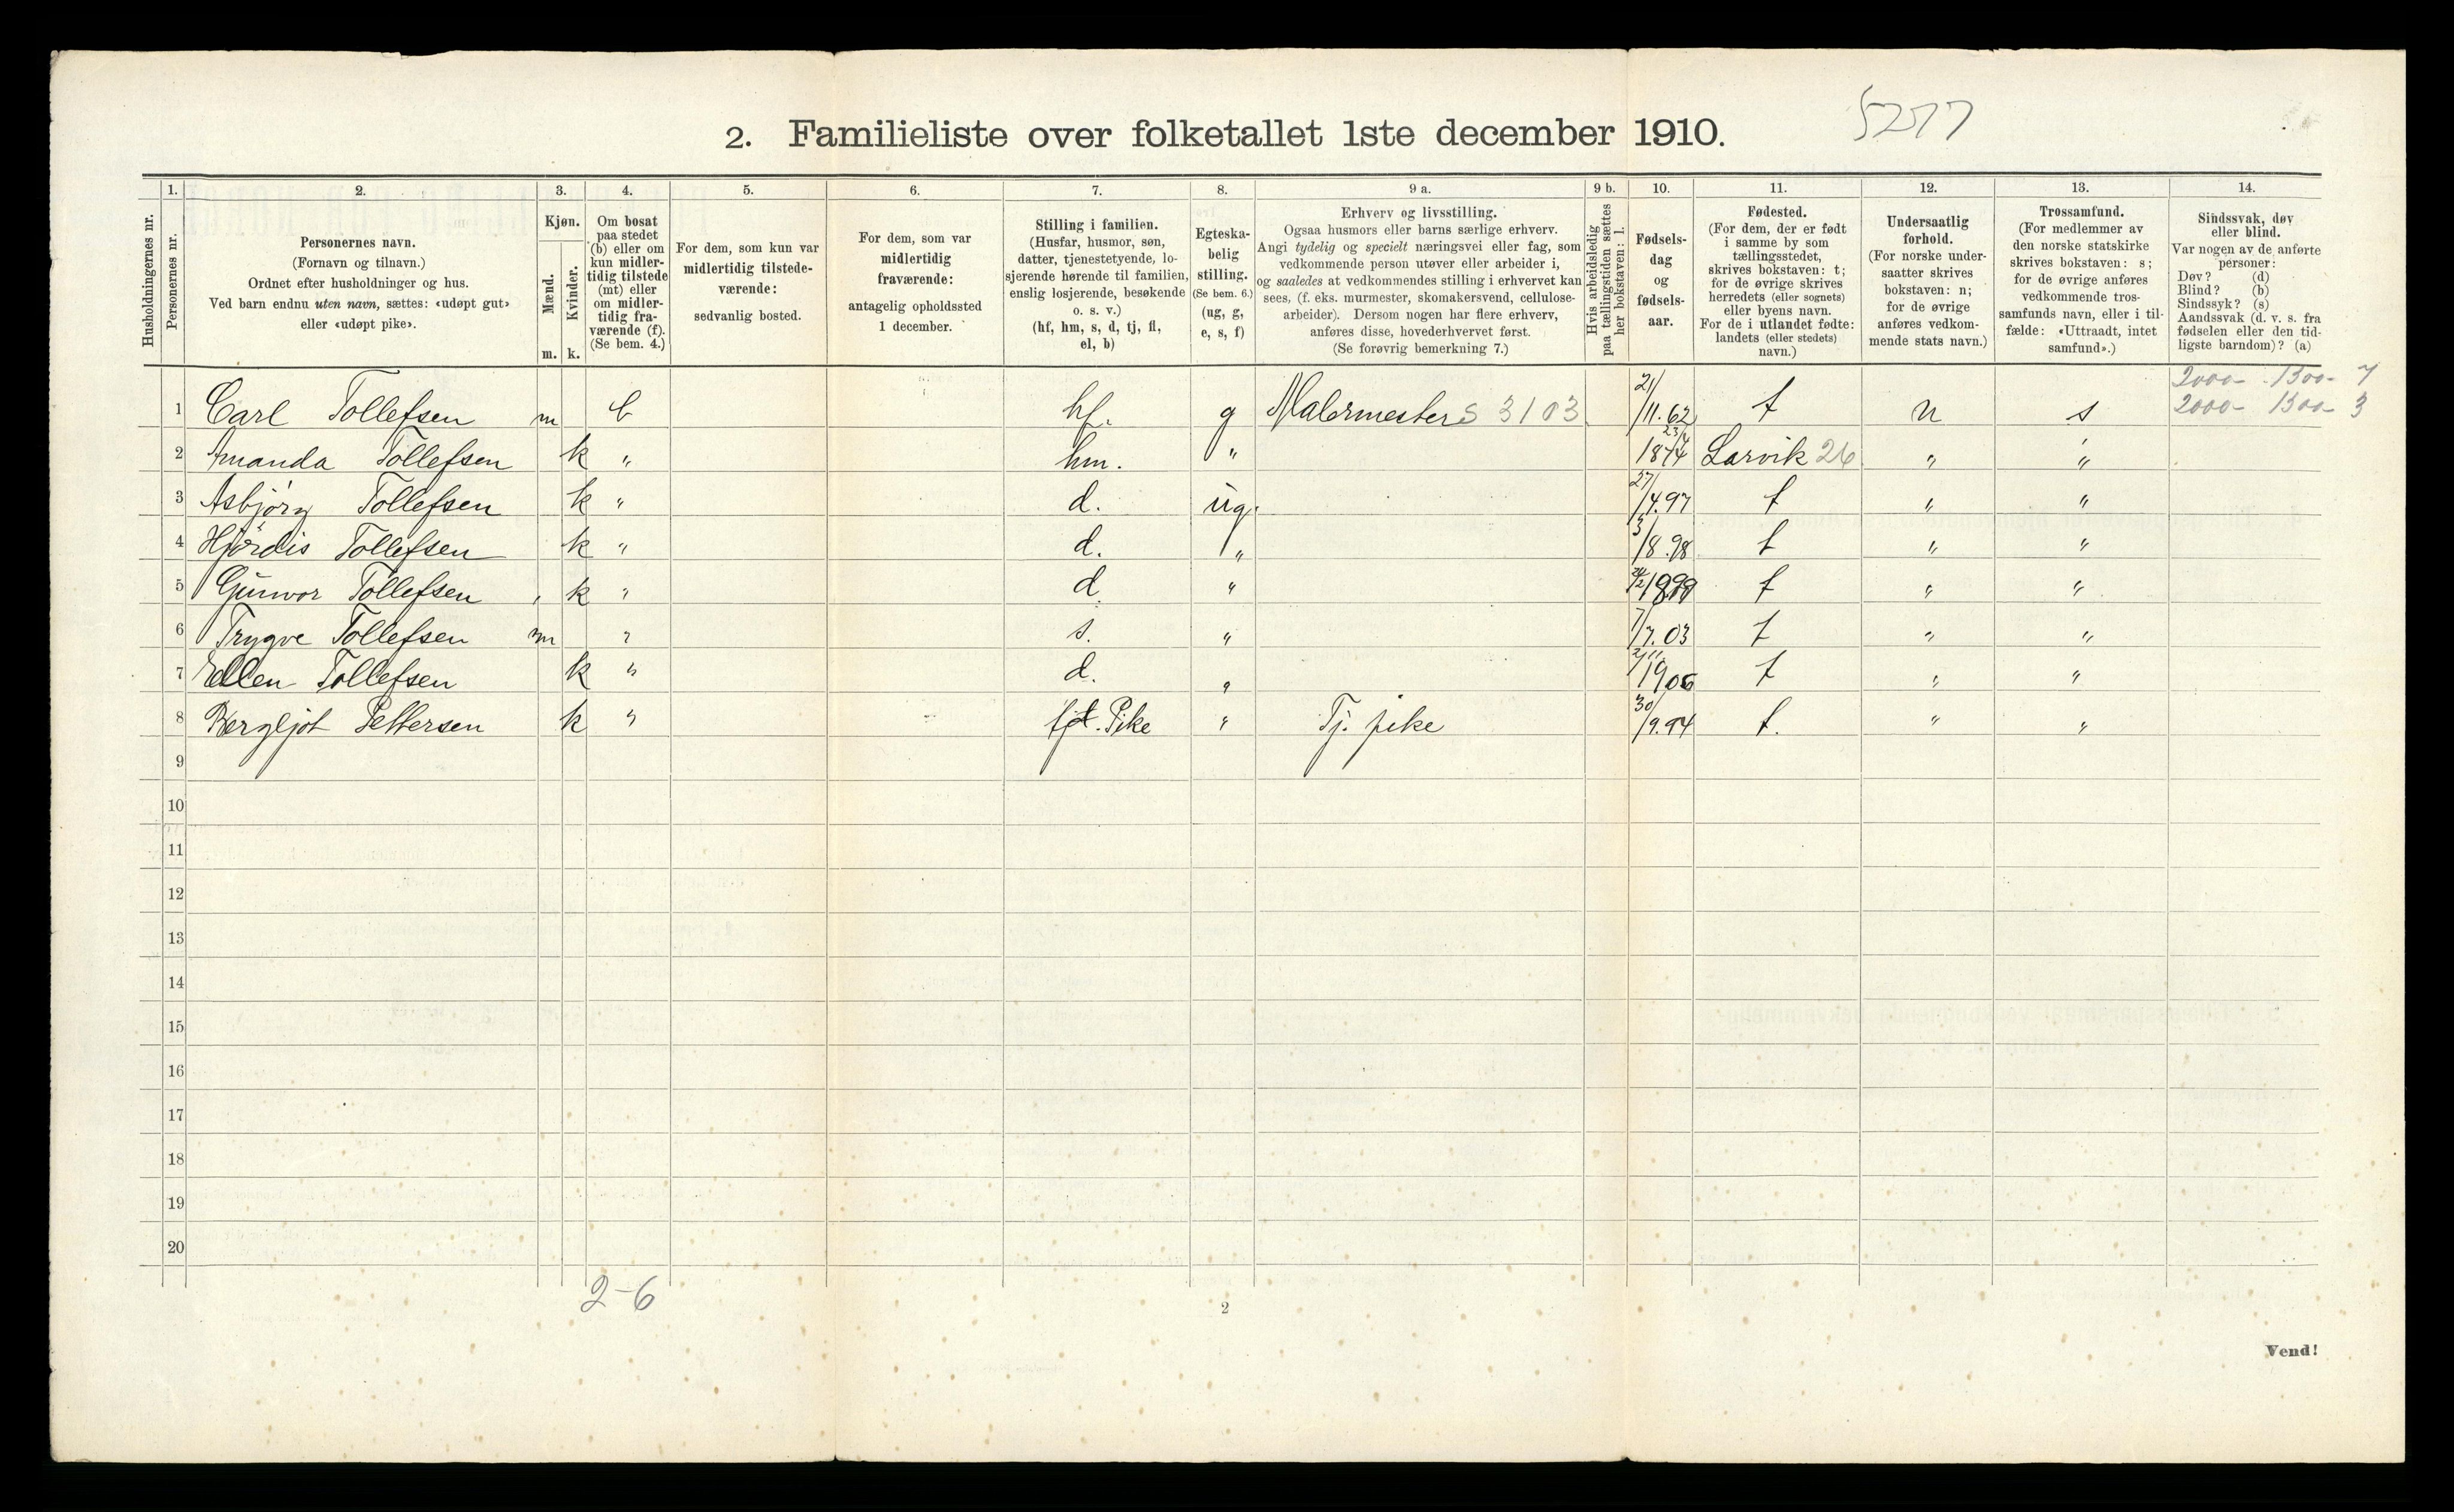 2. Familieliste over folketallet 1ste december 1910.
5277
Husholdningernes nr.
1. Personernes nr.
2. Personernes navn. (Fornavn og tilnavn.) Ordnet efter husholdninger og hus. Ved barn endnu uten navn, sættes: «udøpt gut» eller «udøpt pike».
3. Kjøn. Mænd. m. Kvinder. k.
4. Om bosat paa stedet (b) eller om kun midlertidig tilstede (mt) eller om midlertidig fraværende (f). (Se bem. 4.)
5. For dem, som kun var midlertidig tilstedeværende: sedvanlig bosted.
6. For dem, som var midlertidig fraværende: antagelig opholdssted 1 december.
7. Stilling i familien. (Husfar, husmor, søn, datter, tjenestetyende, losjerende hørende til familien, enslig losjerende, besøkende o. s. v.) (hf, hm, s, d, tj, fl, el, b)
8. Egteskabelig stilling. (Se bem. 6.) (ug, g, e, s, f)
9 a. Erhverv og livsstilling. Ogsaa husmors eller barns særlige erhverv. Angi tydelig og specielt næringsvei eller fag, som vedkommende person utøver eller arbeider i, og saaledes at vedkommendes stilling i erhvervet kan sees, (f. eks. murmester, skomakersvend, cellulosearbeider). Dersom nogen har flere erhverv, anføres disse, hovederhvervet først. (Se forøvrig bemerkning 7.)
9 b. Hvis arbeidsledig paa tællingstiden sættes her bokstaven: l.
10. Fødselsdag og fødselsaar.
11. Fødested. (For dem, der er født i samme by som tællingsstedet, skrives bokstaven: t; for de øvrige skrives herredets (eller sognets) eller byens navn. For de i utlandet fødte: landets (eller stedets) navn.)
12. Undersaatlig forhold. (For norske undersaatter skrives bokstaven: n; for de øvrige anføres vedkommende stats navn.)
13. Trossamfund. (For medlemmer av den norske statskirke skrives bokstaven: s; for de øvrige anføres vedkommende trossamfunds navn, eller i tilfælde: «Uttraadt, intet samfund».)
14. Sindssvak, døv eller blind. Var nogen av de anførte personer: Døv? (d) Blind? (b) Sindssyk? (s) Aandssvak (d. v. s. fra fødselen eller den tidligste barndom)? (a)
2000- 1300- 7
1 Carl Tollefsen m b hf. g Malermester S 3103 21/11.62 t n s 2000- 1300- 3
2 Amanda Tollefsen k " hm. " 23/4 1874 Larvik 26 " "
3 Asbjörg Tollefsen k " d. ug. 27/4.97 t " "
4 Hjördis Tollefsen k " d. " 3/8.98 t " "
5 Gunvor Tollefsen k " d. " 1899 t " "
6 Trygve Tollefsen m " s. " 7/7.03 t " "
7 Ellen Tollefsen k " d. " 2/11 1906 t " "
8 Bergljot Pettersen k " tj. Pike " Tj. pike 30/9.94 t. " "
9
10
11
12
13
14
15
16
17
18
19
20
2-6
2
Vend!